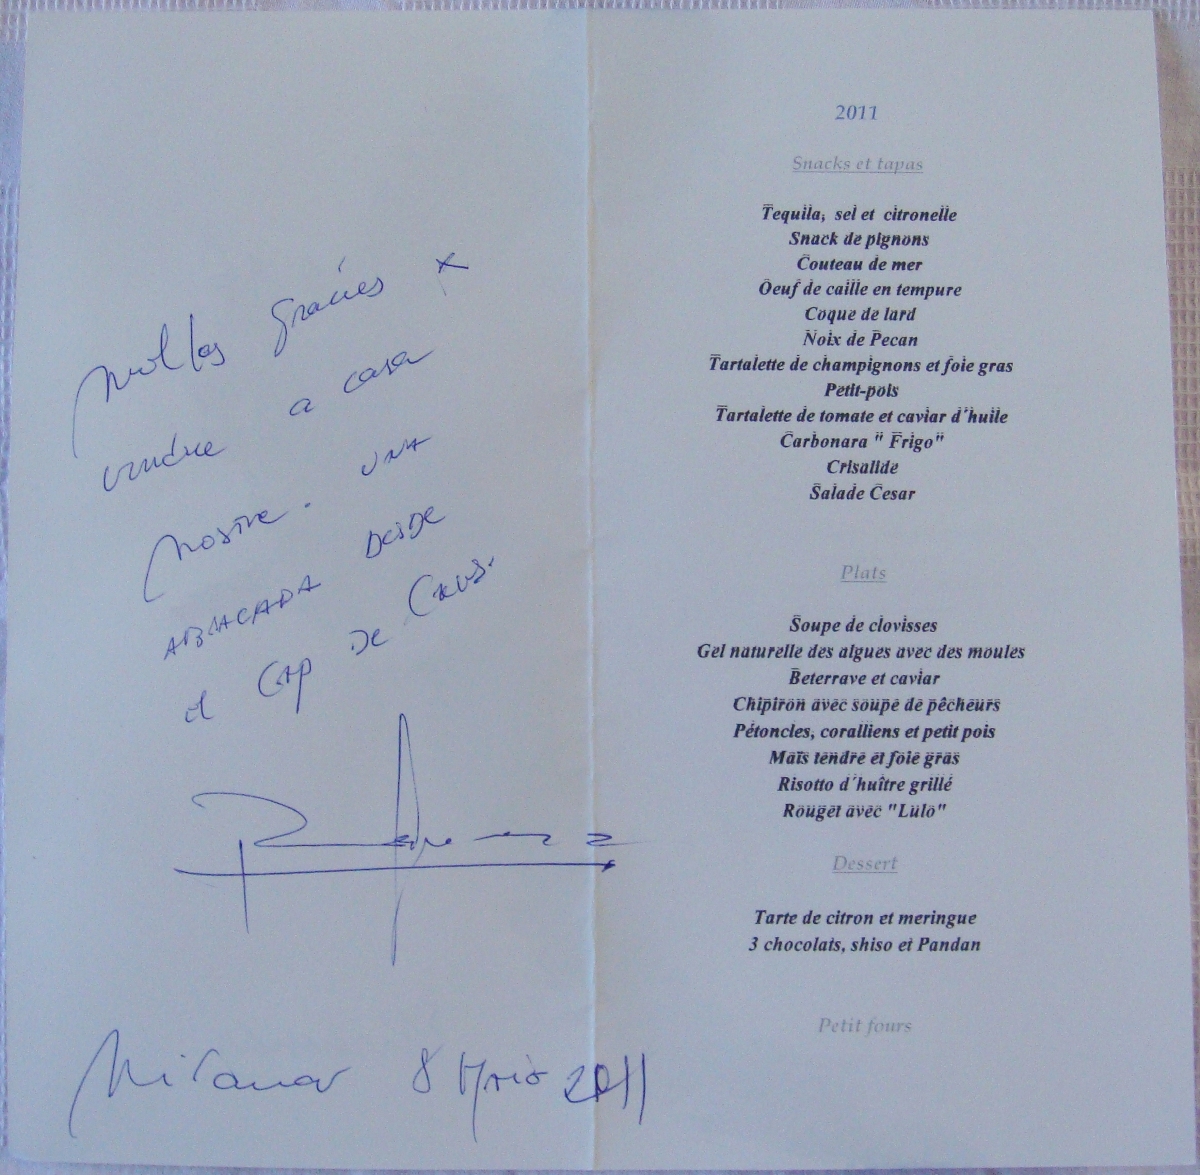 moltes gracies x
vindre a casa
nostre. UNA
ABRACADA DESDE
el CAP DE CREUS.
Miramar 8 Maio 2011
2011
Snacks et tapas
Tequila, sel et citronelle
Snack de pignons
Couteau de mer
Oeuf de caille en tempure
Coque de lard
Noix de Pecan
Tartalette de champignons et foie gras
Petit-pois
Tartalette de tomate et caviar d'huile
Carbonara " Frigo"
Crisalide
Salade Cesar
Plats
Soupe de clovisses
Gel naturelle des algues avec des moules
Beterrave et caviar
Chipiron avec soupe de pêcheurs
Pétoncles, coralliens et petit pois
Maïs tendre et foie gras
Risotto d'huître grillé
Rouget avec "Lulo"
Dessert
Tarte de citron et meringue
3 chocolats, shiso et Pandan
Petit fours